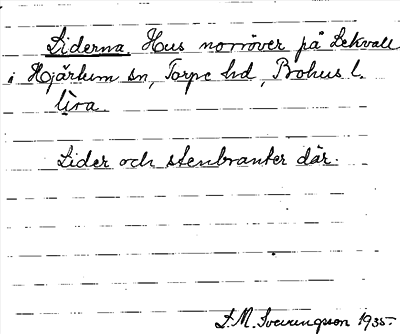 Liderna. Hus norröver på Lekvall
i Hjärtum sn, Torpe hd, Bohus l.
lìra
Lider och stenbranter där.
D. M. Sveningsson 1935.